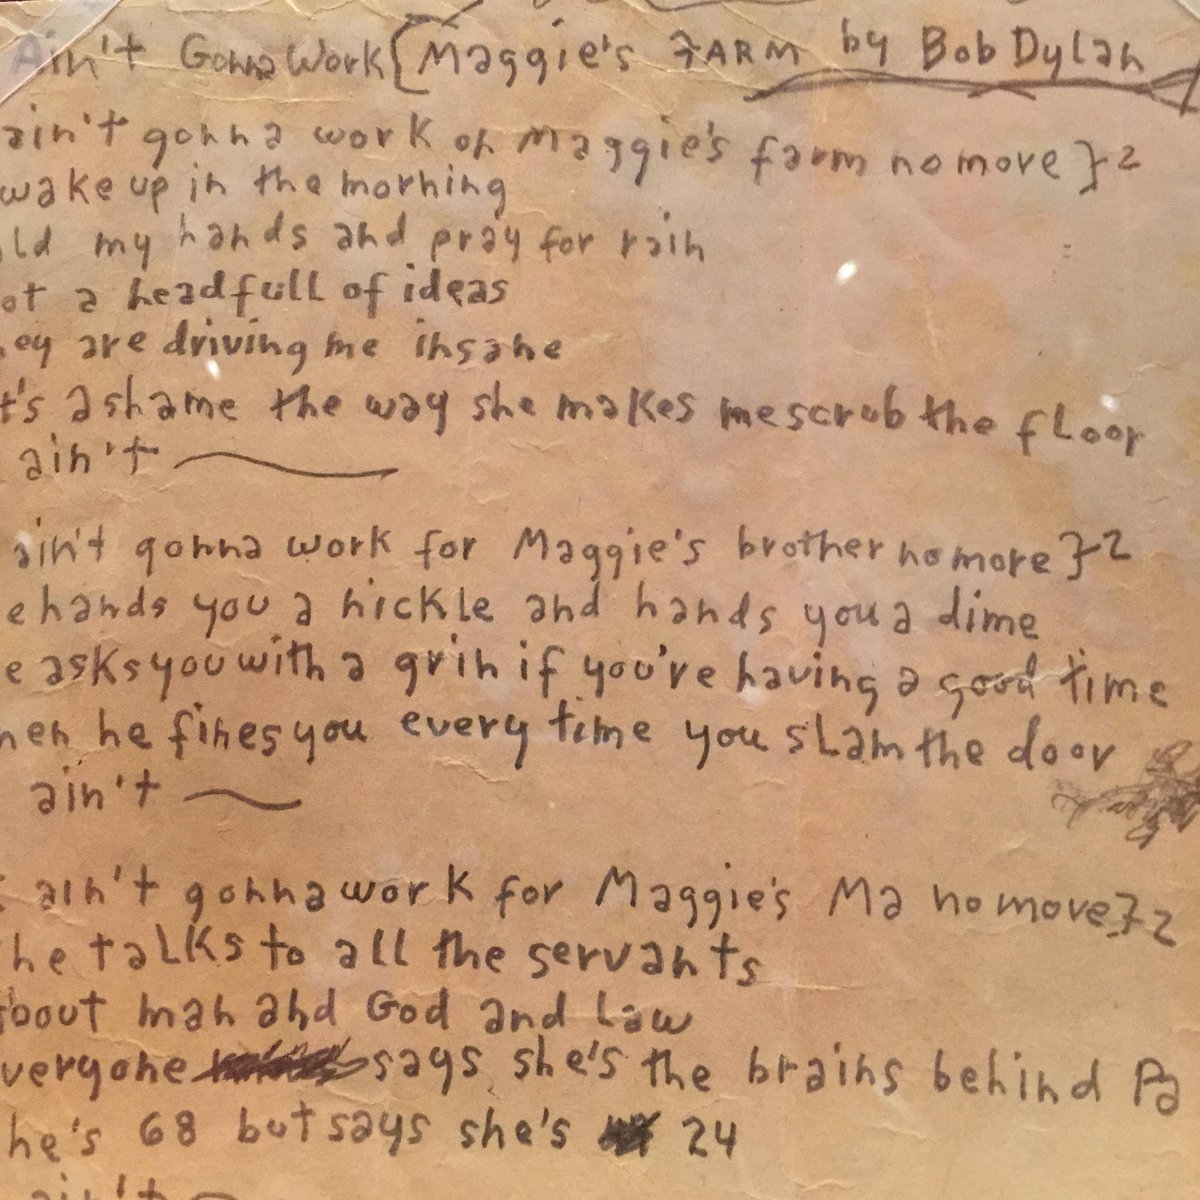 Ain't Gonna Work { Maggie's FARM by Bob Dylan
ain't gonna work on Maggie's farm no more }2
wake up in the morning
ld my hands and pray for rain
ot a headfull of ideas
hey are driving me insane
t's a shame the way she makes me scrub the floor
ain't
ain't gonna work for Maggie's brother no more }2
e hands you a nickle and hands you a dime
e asks you with a grin if you're having a good time
hen he fines you every time you slam the door
ain't
ain't gonna work for Maggie's Ma no more }2
he talks to all the servants
about man and God and Law
veryone says she's the brains behind Pa
he's 68 but says she's 24
ain't